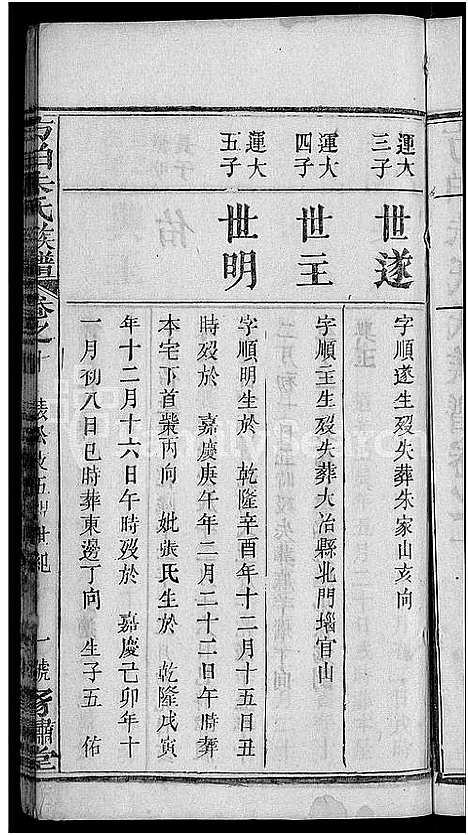 運大三子
世遂
字順遂生歿失葬朱家山亥向
運大四子
世主
字順主生歿失葬大冶縣北門堖官山
運大五子
世明
字順明生於 乾隆辛酉年十二月十五日丑
時歿於 嘉慶庚午年二月二十二日午時葬
本宅下首業丙向 妣張氏生於 乾隆戌寅
年十二月十六日午時歿於 嘉慶己卯年十
一月初八日巳時葬東邊丁向 生子五 佑
朱氏族譜 卷之十 世紀 一號 肅堂